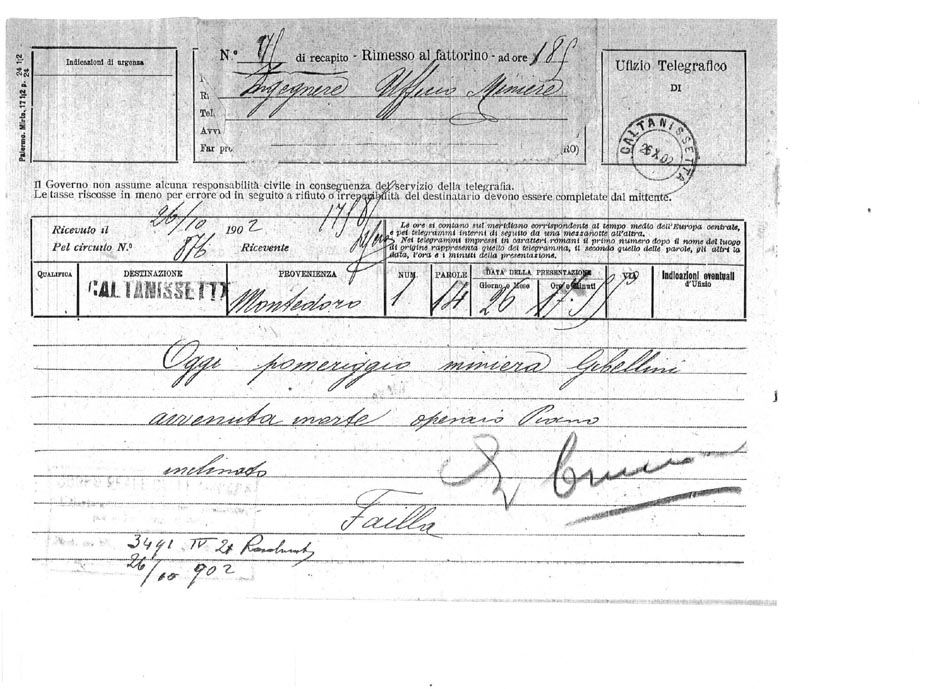 Palermo. Mirto, 17 1|2 p. 24 1|2 24
Indicazioni di urgenza
N.º di recapito - Rimesso al fattorino - ad ore 18
Ingegnere Ufficio Miniere
Tel.
Avvi
Far pro RO)
Ufizio Telegrafico
DI
CALTANISSETTA
26 X 02
Il Governo non assume alcuna responsabilità civile in conseguenza del servizio della telegrafia.
Le tasse riscosse in meno per errore od in seguito a rifiuto o irreperibilità del destinatario devono essere completate dal mittente.
Ricevuto il 26/10 1902
Pel circuito N.º 876 Ricevente
Le ore si contano sul meridiano corrispondente al tempo medio dell'Europa centrale,
e pei telegrammi interni di seguito da una mezzanotte all'altra.
Nei telegrammi impressi in caratteri romani il primo numero dopo il nome del luogo
di origine rappresenta quello del telegramma, il secondo quello delle parole, gli altri la
data, l'ora e i minuti della presentazione.
QUALIFICA DESTINAZIONE PROVENIENZA NUM. PAROLE DATA DELLA PRESENTAZIONE VIA Indicazioni eventuali d'Ufizio
Giorno e Mese Ore e Minuti
CALTANISSETTA Montedoro 1 14 26 17.5
Oggi pomeriggio miniera Gibellini
avvenuta morte operaio Piano
inclinato
Failla
3491 IV 21
26/10 902